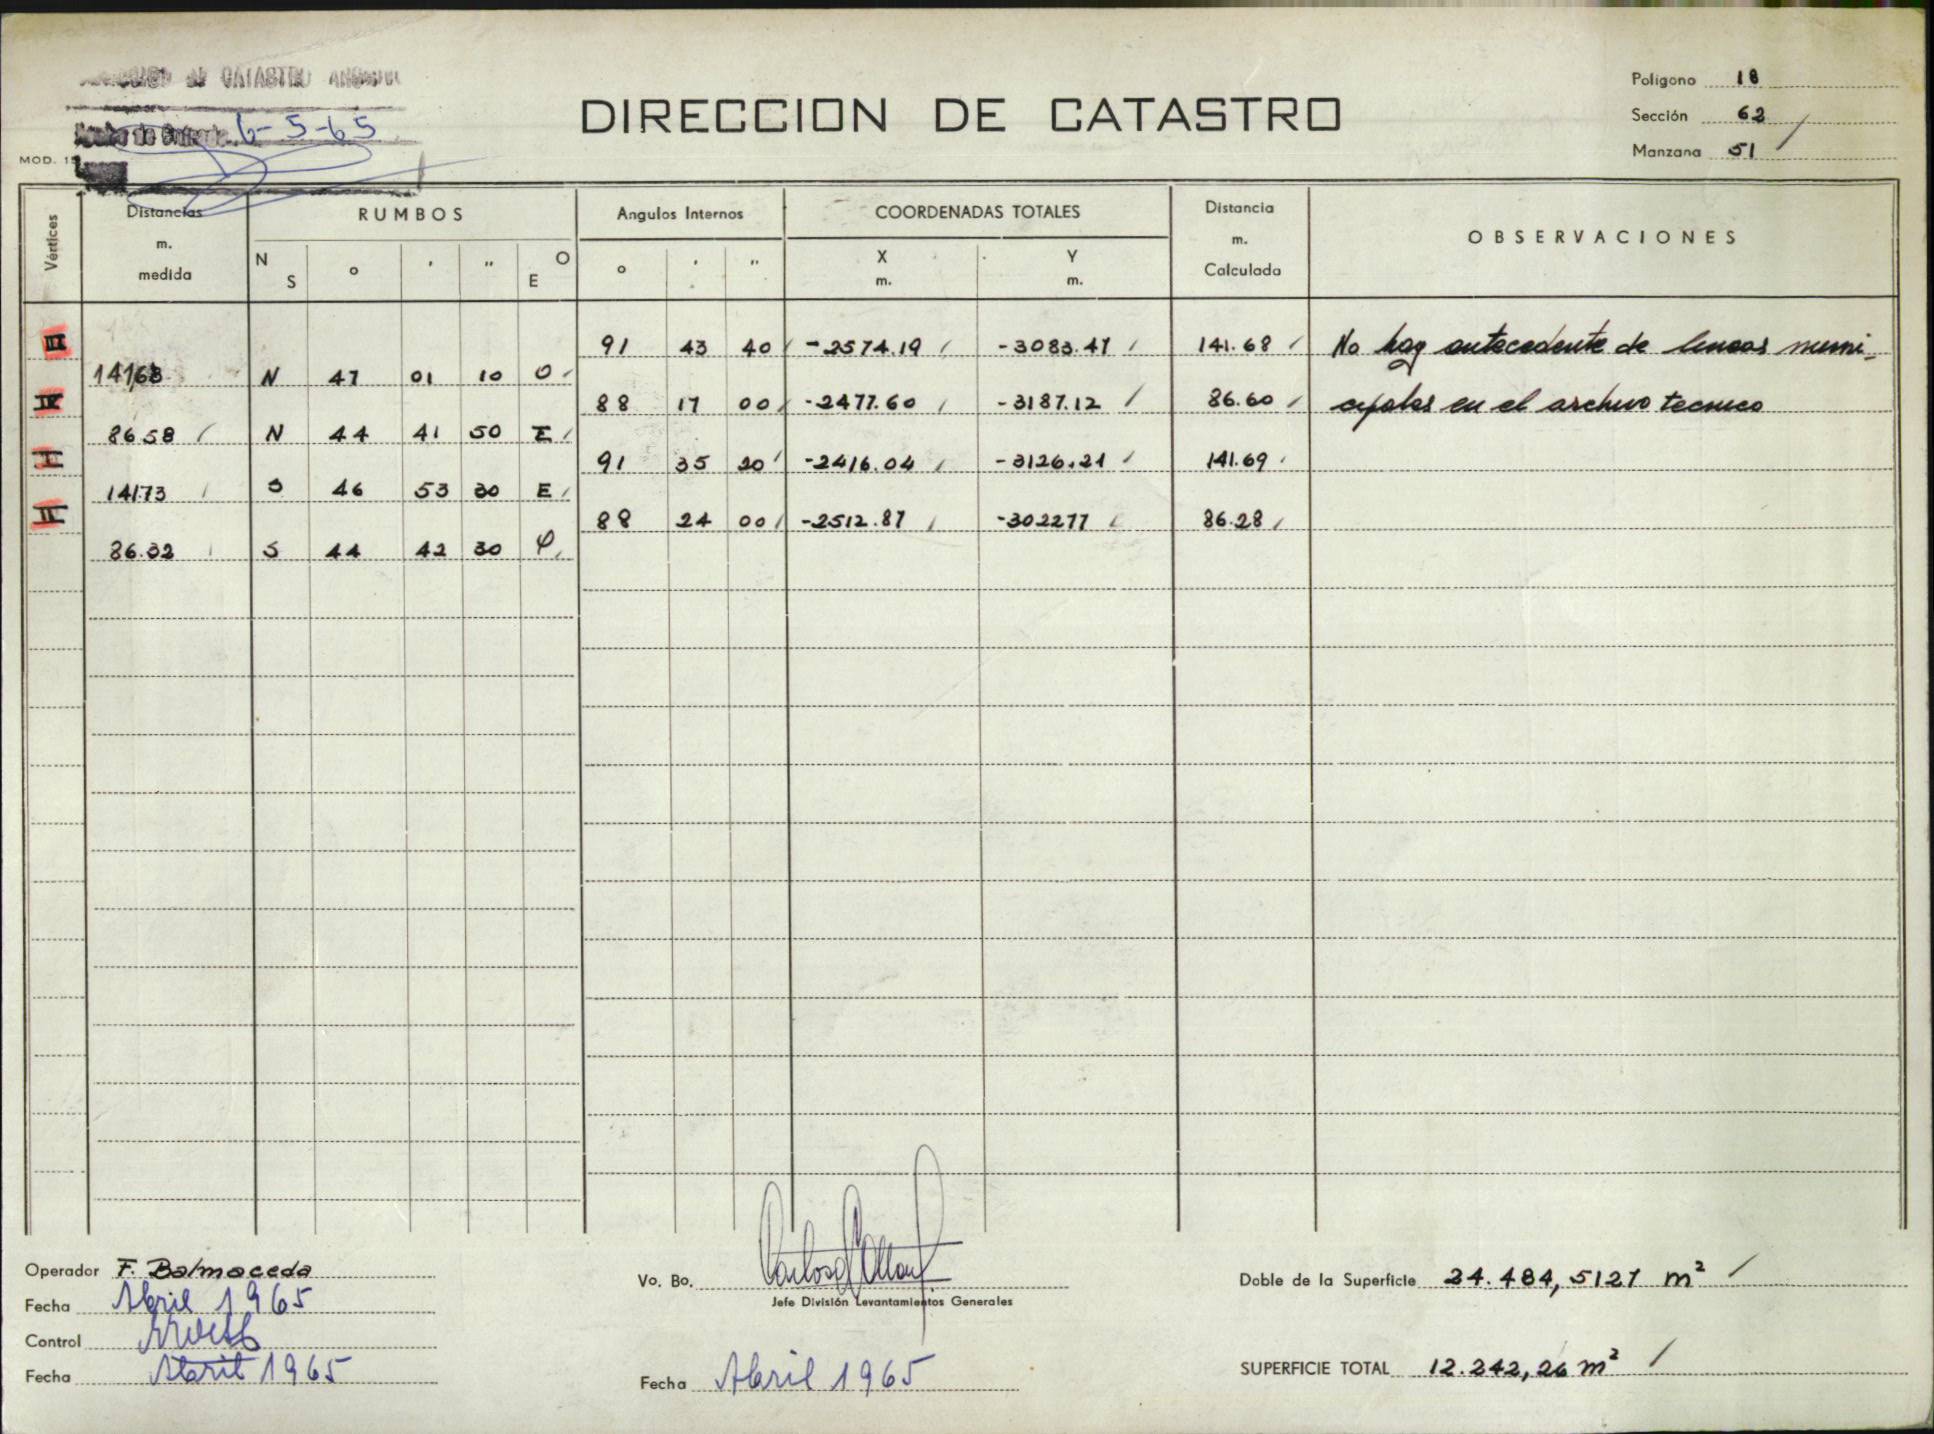 DE CATASTRO
6-5-65
DIRECCION DE CATASTRO
Polígono 18
Sección 62
Manzana 51
MOD.
Vértices
Distancias
m.
medida
RUMBOS
N S ° ' " E O
Angulos Internos
° ' "
COORDENADAS TOTALES
X
m.
Y
m.
Distancia
m.
Calculada
OBSERVACIONES
III 91 43 40 -2574.19 -3083.47 141.68 No hay antecedente de lineas muni-
141.68 N 47 01 10 O
IV 88 17 00 -2477.60 -3187.12 86.60 cipales en el archivo tecnico
86.58 N 44 41 50 E
I 91 35 20 -2416.04 -3126.21 141.69
141.73 S 46 53 30 E
II 88 24 00 -2512.87 -3022.77 86.28
86.32 S 44 42 30 O
Operador F. Balmaceda
Fecha Abril 1965
Control
Fecha Abril 1965
Vo. Bo.
Jefe División Levantamientos Generales
Fecha Abril 1965
Doble de la Superficie 24.484,5127 m²
SUPERFICIE TOTAL 12.242,26 m²